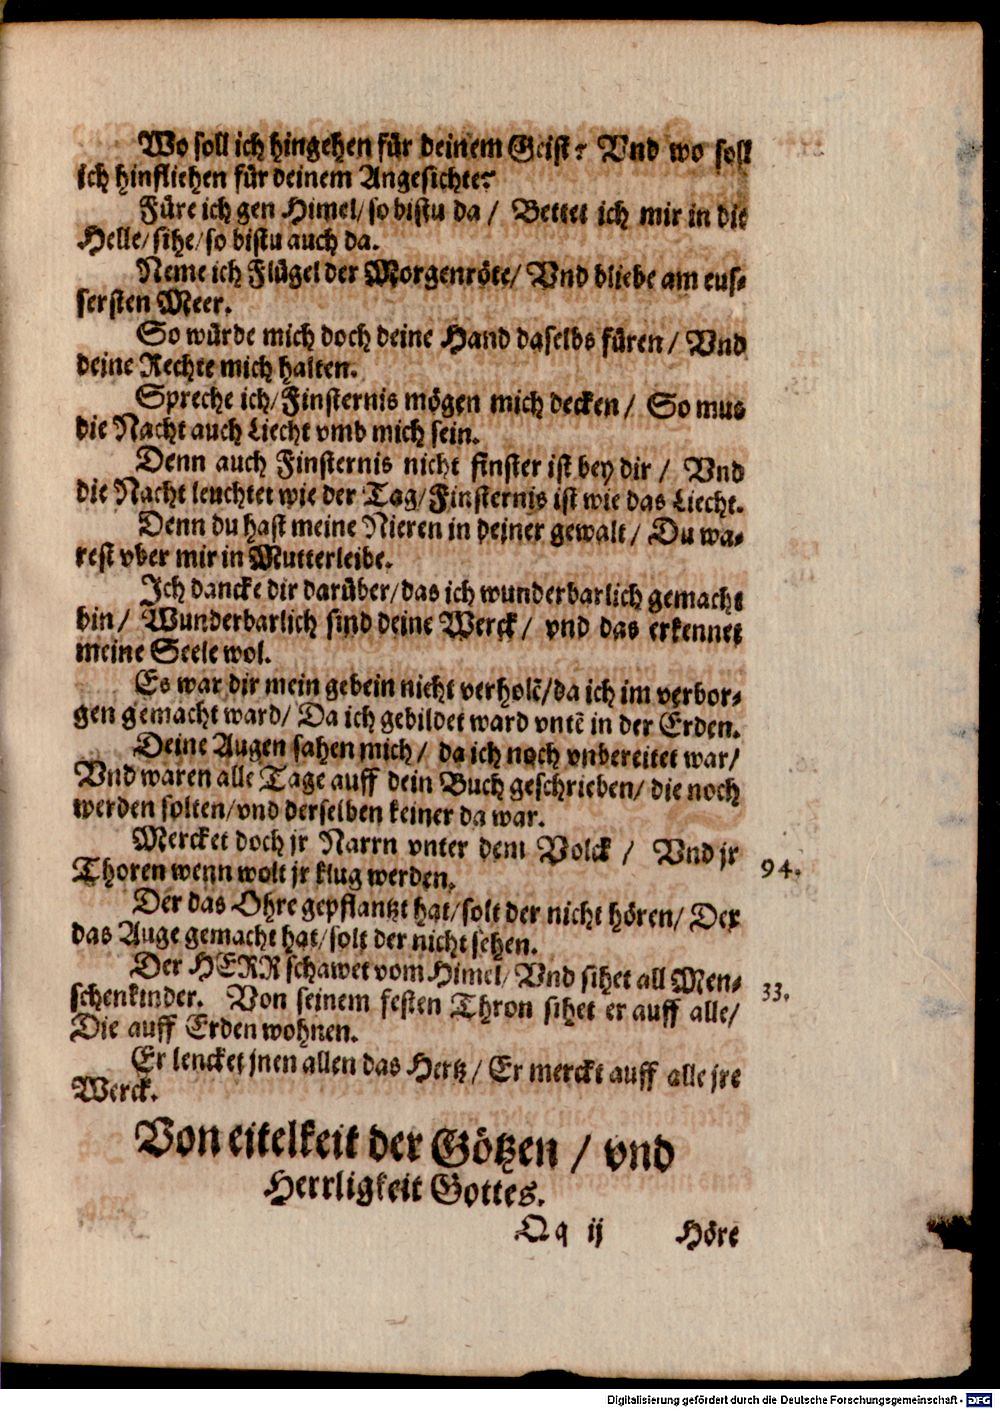 Wo soll ich hingehen für deinem Geist? Vnd wo soll
ich hinfliehen für deinem Angesichte?
Füre ich gen Himel/ so bistu da / Bettet ich mir in die
Helle/ sihe/ so bistu auch da.
Neme ich Flügel der Morgenröte/ Vnd bliebe am eus-
sersten Meer.
So würde mich doch deine Hand daselbs füren / Vnd
deine Rechte mich halten.
Spreche ich/ Finsternis mögen mich decken / So mus
die Nacht auch Liecht vmb mich sein.
Denn auch Finsternis nicht finster ist bey dir / Vnd
die Nacht leuchtet wie der Tag/ Finsternis ist wie das Liecht.
Denn du hast meine Nieren in deiner gewalt / Du wa-
rest vber mir in Mutterleibe.
Ich dancke dir darüber/ das ich wunderbarlich gemacht
bin / Wunderbarlich sind deine Werck / vnd das erkennet
meine Seele wol.
Es war dir mein gebein nicht verholē/ da ich im verbor-
gen gemacht ward/ Da ich gebildet ward vntē in der Erden.
Deine Augen sahen mich / da ich noch vnbereitet war/
Vnd waren alle Tage auff dein Buch geschrieben/ die noch
werden solten/ vnd derselben keiner da war.
Mercket doch jr Narrn vnter dem Volck / Vnd jr
Thoren wenn wolt jr klug werden. 94.
Der das Ohre gepflantzt hat/ solt der nicht hören/ Der
das Auge gemacht hat/ solt der nicht sehen.
Der HERR schawet vom Himel/ Vnd sihet all Men-
schenkinder. Von seinem festen Thron sihet er auff alle/ 33.
Die auff Erden wohnen.
Er lencket jnen allen das Hertz / Er merckt auff alle jre
Werck.
Von eitelkeit der Götzen / vnd
Herrligkeit Gottes.
Qq ij Höre
Digitalisierung gefördert durch die Deutsche Forschungsgemeinschaft - DFG